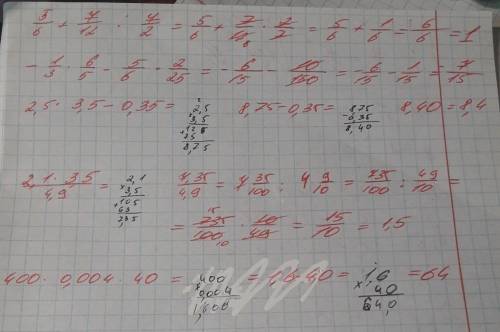 5/6 + 7/12 : 7/2 = 5/6 + 7/12 · 2/7 = 5/6 + 1/6 = 6/6 = 1
- 1/3 · 6/5 - 5/6 · 2/25 = - 6/15 - 10/150 = - 6/15 - 1/15 = - 7/15
2,5 · 3,5 - 0,35 = 2,5 × 3,5 + 125 75 8,75 8,75 - 0,35 = 8,75 - 0,35 8,40 8,40 = 8,4
2,1 · 3,5 / 4,9 = 2,1 × 3,5 + 105 63 7,35 7,35 / 4,9 = 7 35/100 : 4 9/10 = 735/100 : 49/10 =
= 735/100 · 10/49 = 15/10 = 1,5
400 · 0,004 · 40 = 400 0,004 1,600 = 1,6 · 40 = 1,6 × 40 64,0 = 64